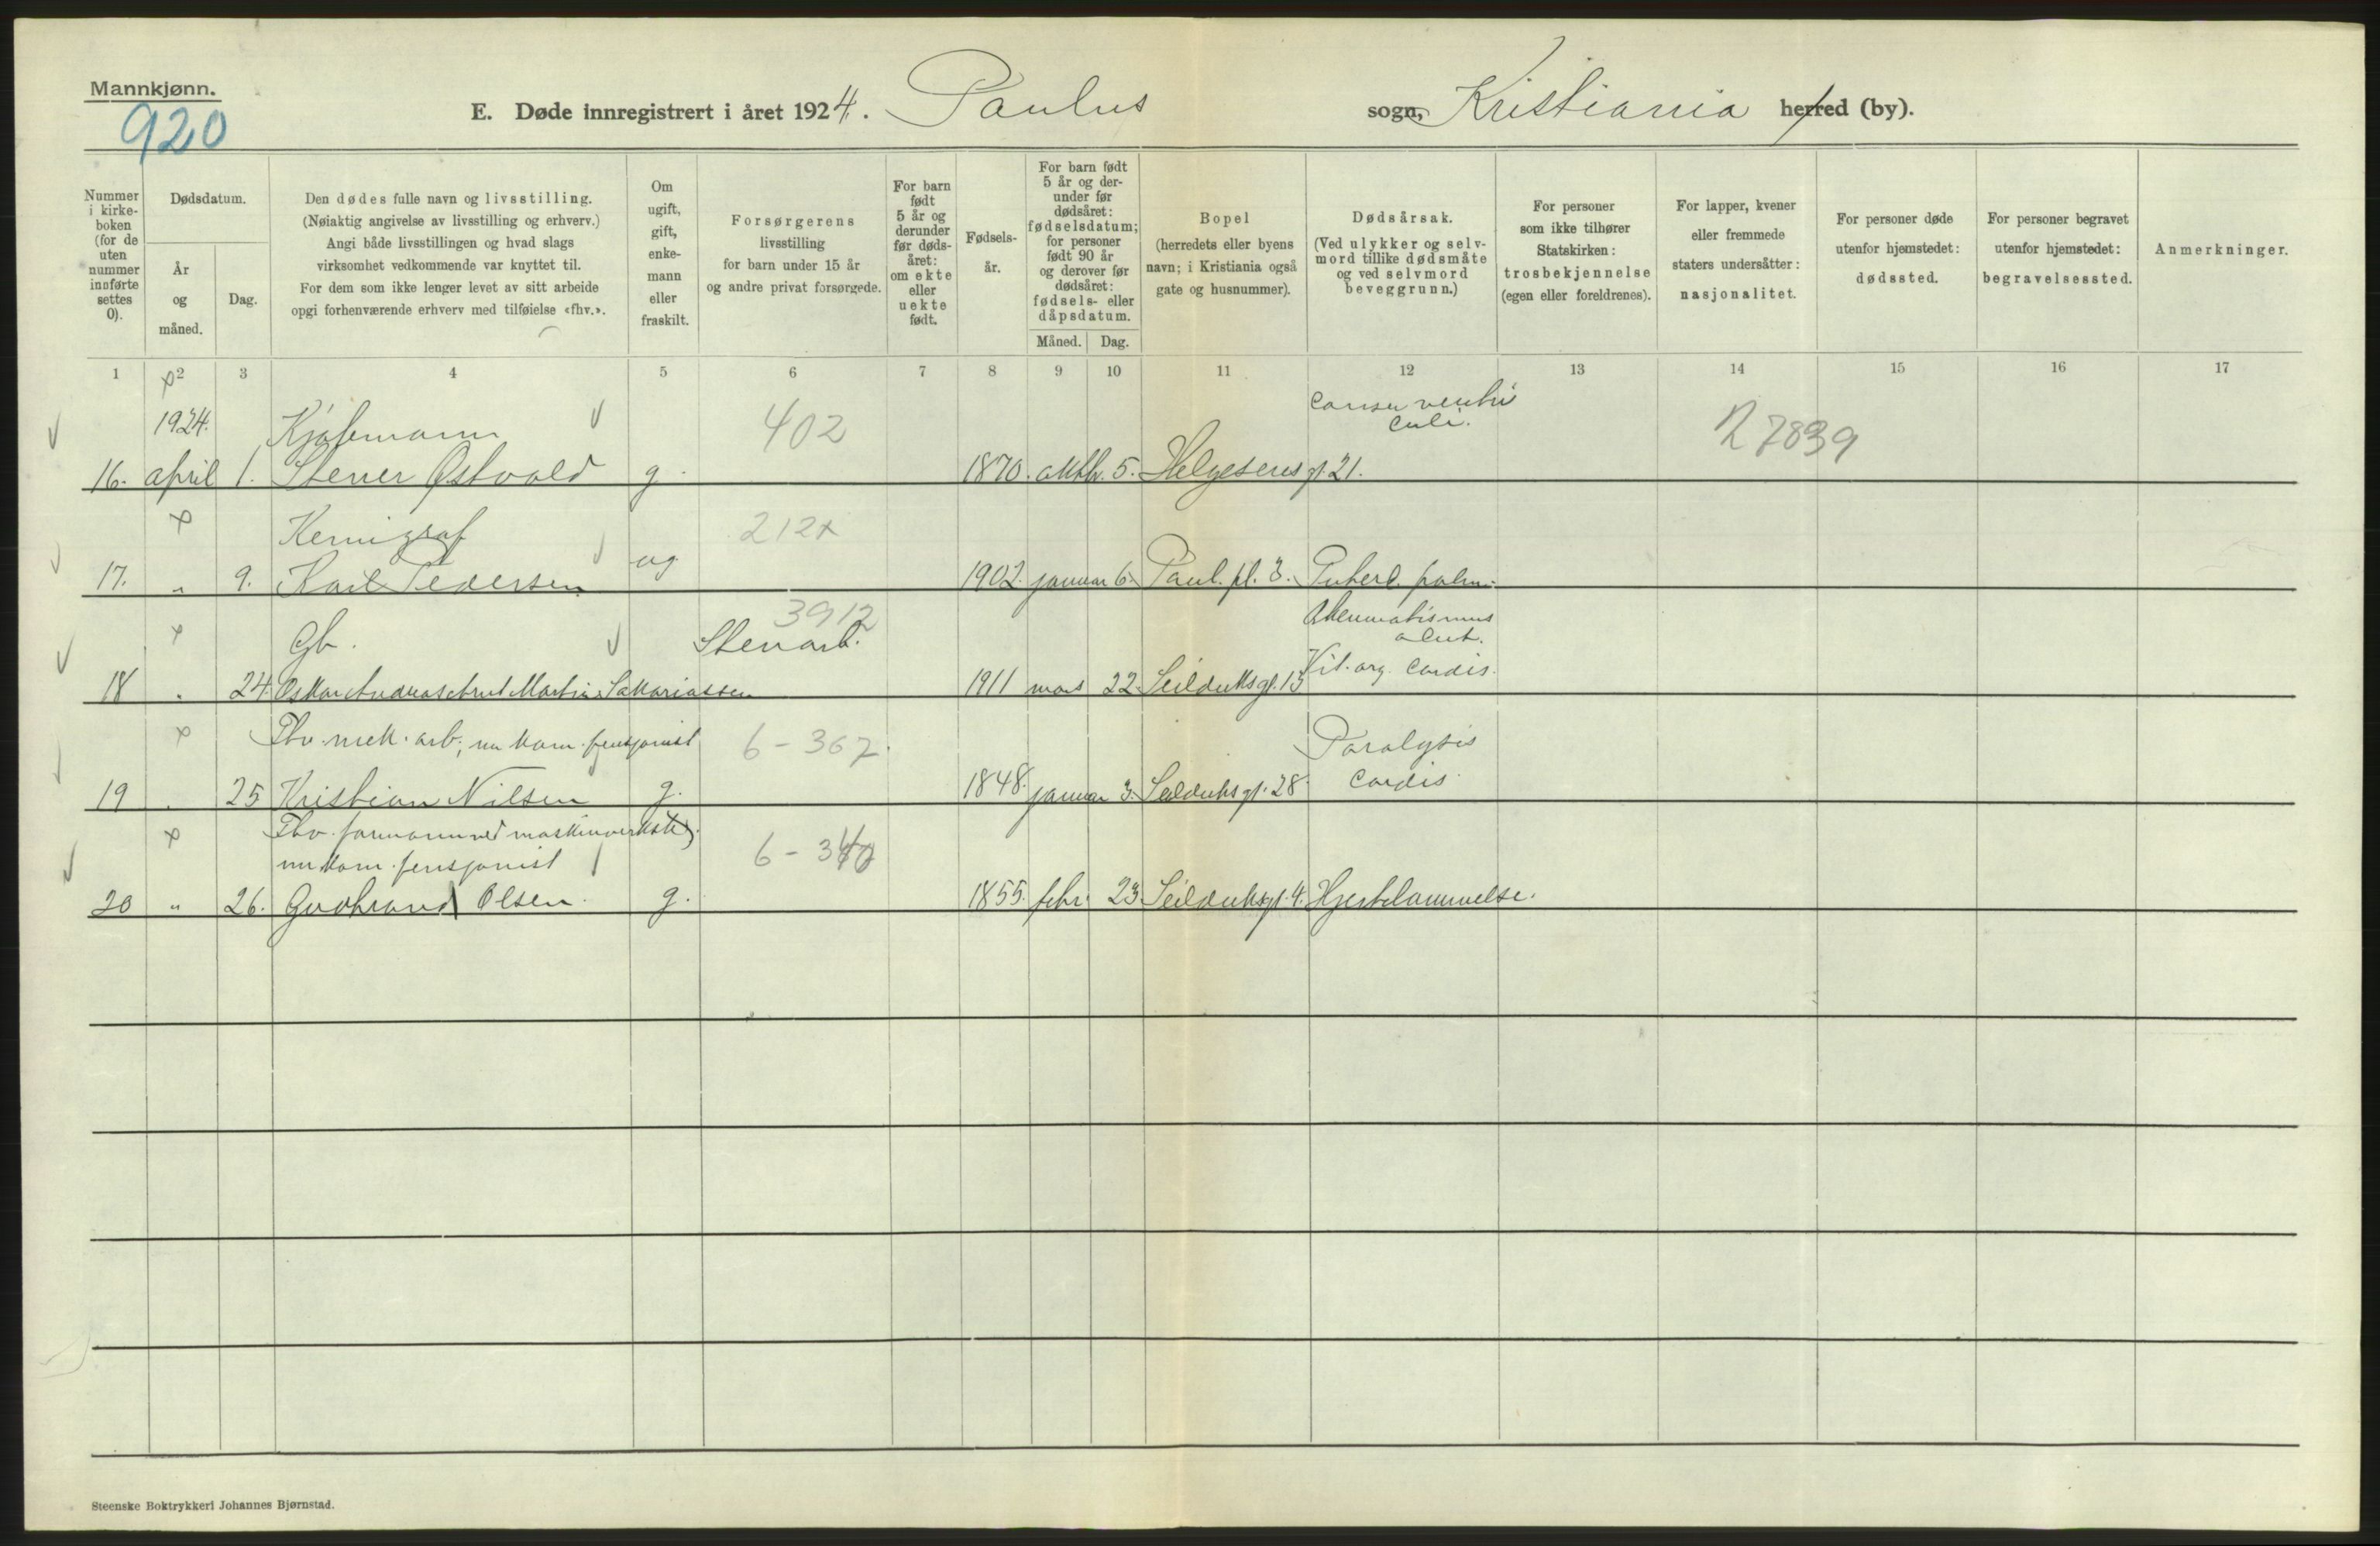 Mannkjønn.
920
E. Døde innregistrert i året 1924. Paulus sogn, Kristiania herred (by).
Nummer i kirkeboken (for de uten nummer innførte settes 0).
Dødsdatum.
År og måned.
Dag.
Den dødes fulle navn og livsstilling.
(Nøiaktig angivelse av livsstilling og erhverv.)
Angi både livsstillingen og hvad slags
virksomhet vedkommende var knyttet til.
For dem som ikke lenger levet av sitt arbeide
opgi forhenværende erhverv med tilføielse «fhv.».
Om ugift, gift, enkemann eller fraskilt.
Forsørgerens
livsstilling
for barn under 15 år
og andre privat forsørgede.
For barn født 5 år og derunder før dødsåret: om ekte eller uekte født.
Fødselsår.
For barn født 5 år og derunder før dødsåret: fødselsdatum; for personer født 90 år og derover før dødsåret: fødsels- eller dåpsdatum.
Måned.
Dag.
Bopel
(herredets eller byens
navn; i Kristiania også
gate og husnummer).
Dødsårsak.
(Ved ulykker og selvmord tillike dødsmåte og ved selvmord beveggrunn.)
For personer
som ikke tilhører
Statskirken:
trosbekjennelse
(egen eller foreldrenes).
For lapper, kvener
eller fremmede
staters undersåtter:
nasjonalitet.
For personer døde
utenfor hjemstedet:
dødssted.
For personer begravet
utenfor hjemstedet:
begravelsessted.
Anmerkninger.
1 2 3 4 5 6 7 8 9 10 11 12 13 14 15 16 17
1924. Kjøpmann 402 Cancer ventri culi. N 7839
16. april 1. Stener Østvold g. 1870. oktbr. 5. Helgesens gt. 21.
Kemigraf 212x
17. " 9. Karl Pedersen ug 1902. januar 6. Paul. pl. 3. Tuberc. pulm.
Gb. 3912 Stenarb. Rheumatismus acut.
18 " 24. Oskar Andreas Arnt Martin Sakariassen 1911 mars 22. Seilduksgt. 15 Vit. org. cordis.
Fhv. mek. arb., nu kom. pensjonist 6-367. Paralysis
19 " 25 Kristian Nilsen g. 1848. januar 3. Seilduksgt. 28. cordis.
Fhv. formann ved maskinverksted,
nu kom. pensjonist
20 " 26. Gudbrand Olsen. g. 1855. febr. 23. Seilduksgt. 4. Hjertelammelse.
Steenske Boktrykkeri Johannes Bjørnstad.